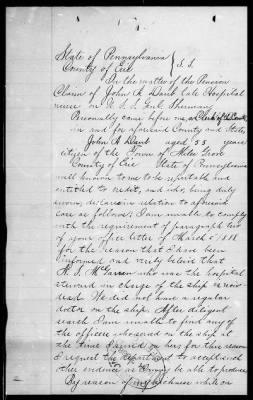 State of Pennsylvania } S.S.
County of Erie
In the matter of the Pension
Claim of John H. late Hospital
nurse on U.S.S. Genl. Sherman
Personally came before me a Clerk of the Court
in and for aforesaid County and State,
John H aged 55 years
citizen of the Town of Miles Grove
County of Erie State of Pennsylvania
well known to me to be reputable and
entitled to credit, and who, being duly
sworn, declares in relation to aforesaid
case as follows; I am unable to comply
with the requirement of paragraph two
of your office letter of March 188
for the reason that I have been
informed and verily believe that
H. S. who was the hospital
steward in charge of the ship is now
dead. We did not have a regular
doctor on the ship. After diligent
search I am unable to find any of
the officers who served on the ship at
the time I served on her for this reason
I request the department to accept such
other evidence as I may be able to produce
By reason of my sickness while on